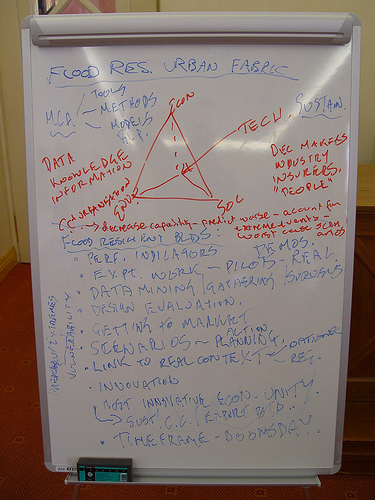 FLOOD RES. URBAN FABRIC
ECON
TOOLS
MCA - METHODS
MODELS
TECH.
SUSTAIN.
DATA
KNOWLEDGE
INFORMATION
DEC MAKERS
INDUSTRY
INSURERS.
"PEOPLE"
SOC
decrease capability - predict worse - account for
extreme events -
worst case scen
FLOOD RESILIENT BLDS:
• PERF. INDICATORS
DEMOS.
• EXPT. WORK - PILOTS - REAL.
• DATA MINING / GATHERING SURVEYS
• DESIGN EVALUATION.
• GETTING TO MARKET
ACTION
• SCENARIOS ~ PLANNING.
• LINK TO REAL CONTEXT
RET.
• INNOVATION
MOST INNOVATIVE ECON - UNITY
SUST / C.C. / EXPORT
• TIMEFRAME - DOOMSDAY.
VULNERABILITY